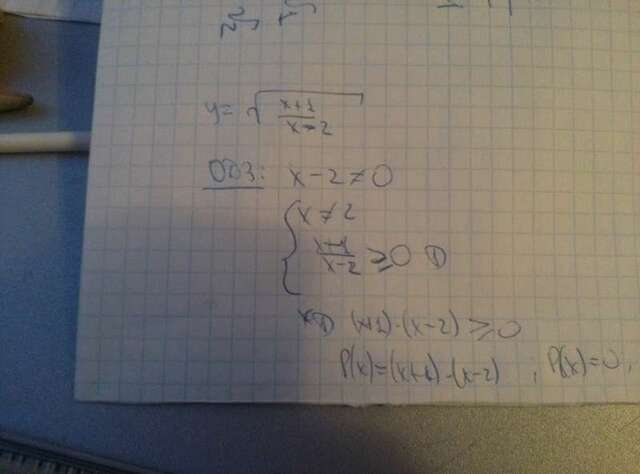 y = √((x+1)/(x-2))
ОДЗ: x-2≠0
{ x≠2
(x+1)/(x-2) ≥0 ①
① (x+1)·(x-2) ≥0
P(x)=(x+1)·(x-2) , P(x)=0,